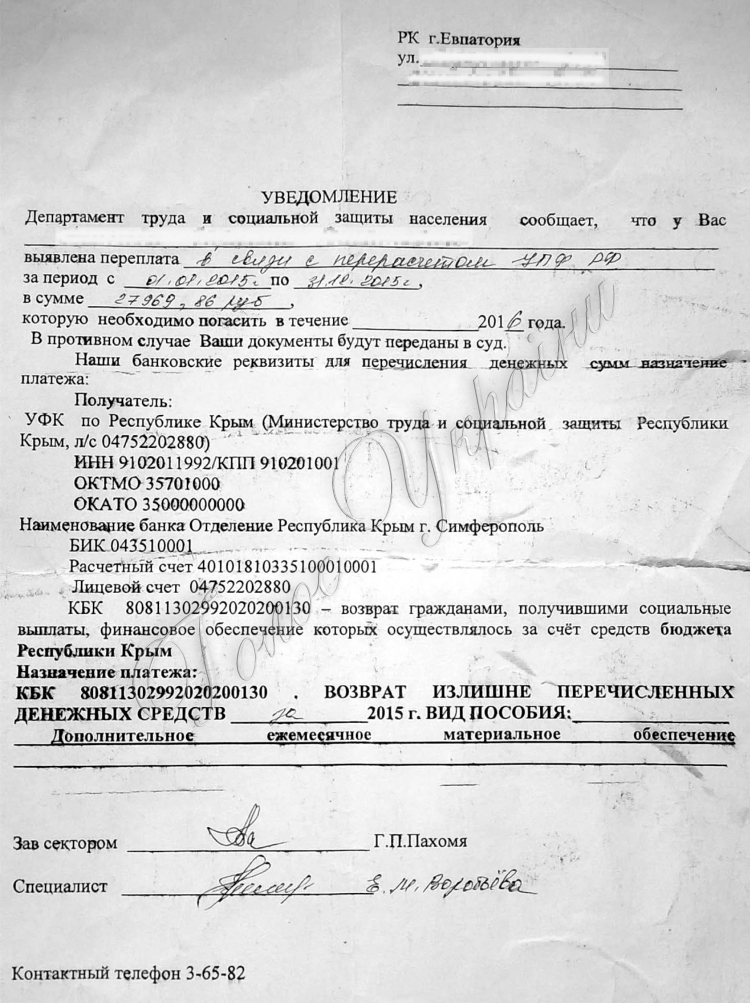 РК г.Евпатория
ул.
УВЕДОМЛЕНИЕ
Департамент труда и социальной защиты населения сообщает, что у Вас
выявлена переплата в связи с перерасчетом УПФ РФ
за период с 01.01.2015г по 31.12.2015г,
в сумме 27969,86 руб,
которую необходимо погасить в течение 2016 года.
В противном случае Ваши документы будут переданы в суд.
Наши банковские реквизиты для перечисления денежных сумм назначение
платежа:
Получатель:
УФК по Республике Крым (Министерство труда и социальной защиты Республики
Крым, л/с 04752202880)
ИНН 9102011992/КПП 910201001
ОКТМО 35701000
ОКАТО 35000000000
Наименование банка Отделение Республика Крым г. Симферополь
БИК 043510001
Расчетный счет 40101810335100010001
Лицевой счет 04752202880
КБК 80811302992020200130 – возврат гражданами, получившими социальные
выплаты, финансовое обеспечение которых осуществлялось за счёт средств бюджета
Республики Крым
Назначение платежа:
КБК 80811302992020200130 . ВОЗВРАТ ИЗЛИШНЕ ПЕРЕЧИСЛЕННЫХ
ДЕНЕЖНЫХ СРЕДСТВ за 2015 г. ВИД ПОСОБИЯ:
Дополнительное ежемесячное материальное обеспечение
Зав сектором Г.П.Пахомя
Специалист Е.М.Воробьёва
Контактный телефон 3-65-82
Голос України